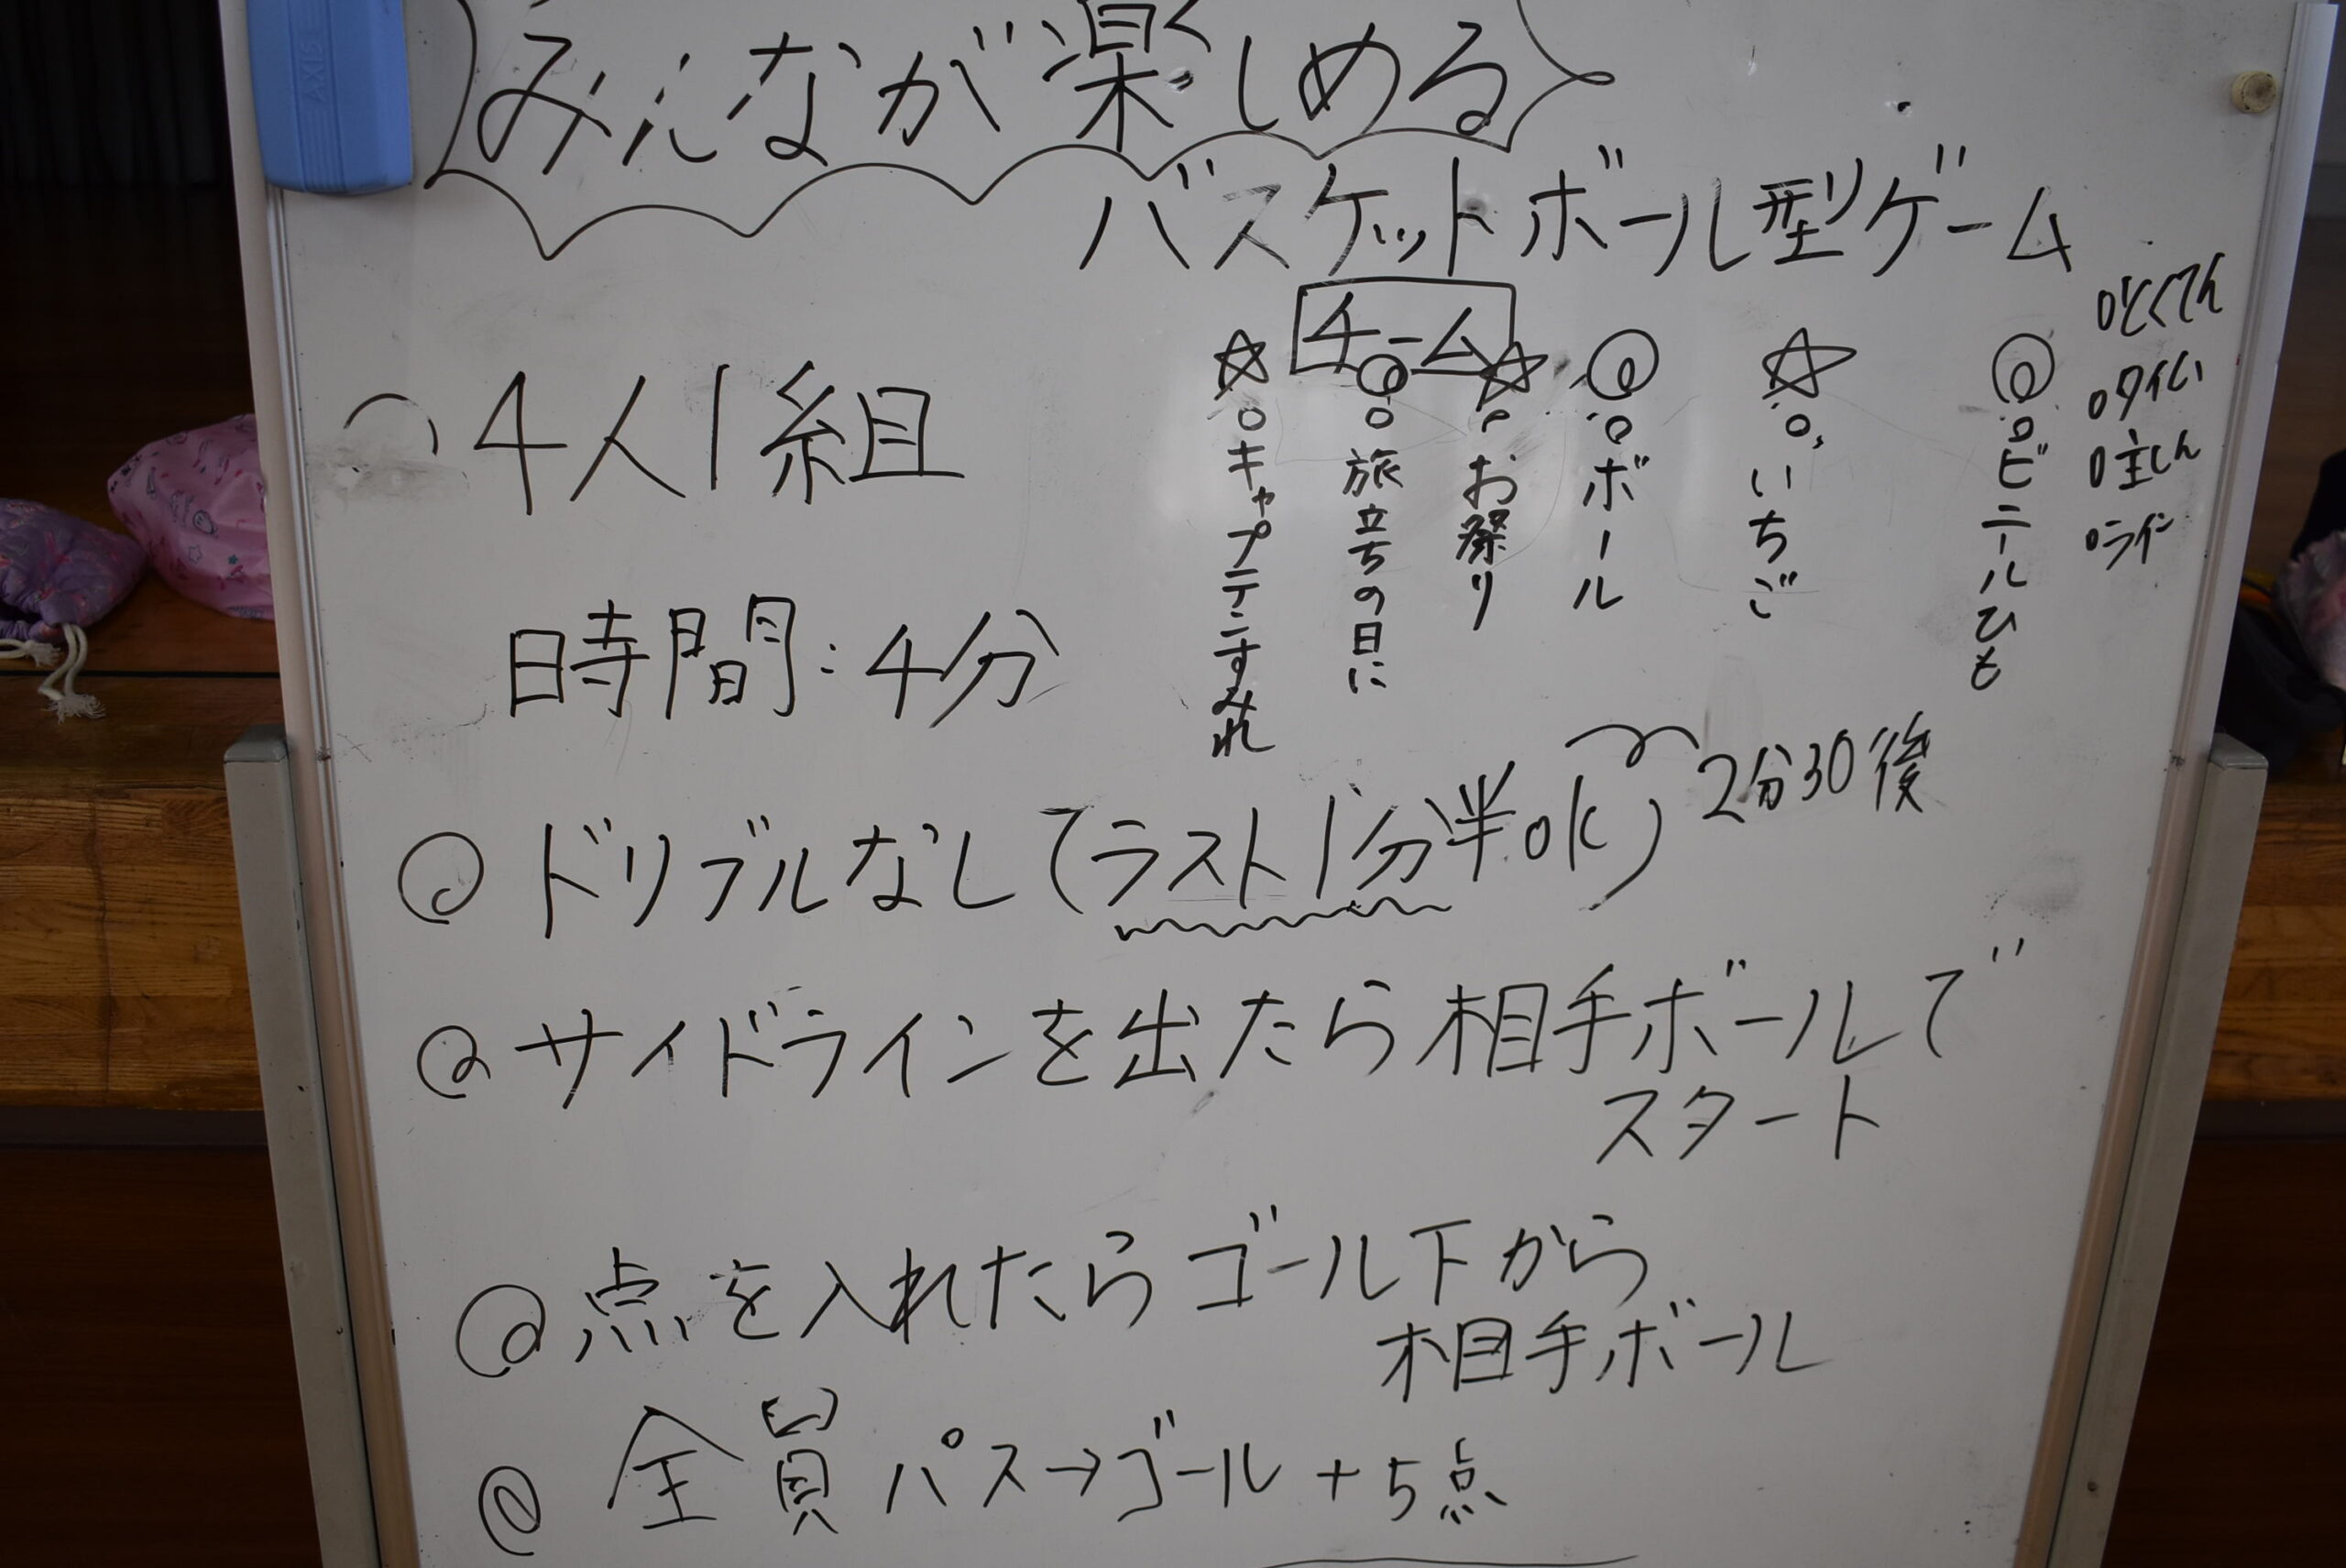 AXIS
みんなが楽しめる
バスケットボール型ゲーム
4人1組
時間:4分
チーム
キャプテンすみれ
旅立ちの日に
お祭り
ボール
いちご
ビニールひも
とくてん
タイム
主しん
ライン
ドリブルなし(ラスト1分半OK)
2分30後
サイドラインを出たら相手ボールで
スタート
点を入れたらゴール下から
相手ボール
全員パス→ゴール+5点